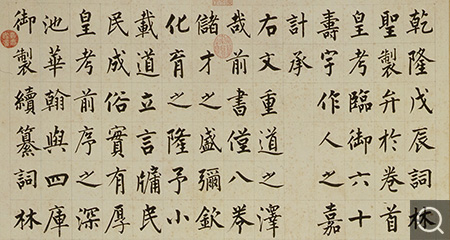 乾隆戊辰詞林
聖製弁於卷首
皇考臨御六十
壽宇作人之嘉
計承
右文重道之澤
哉前書僅八卷
儲才之盛彌欽
化育之隆予小
載道立言牖民
民成俗實有厚
皇考前序之深
池華翰與四庫
御製續纂詞林